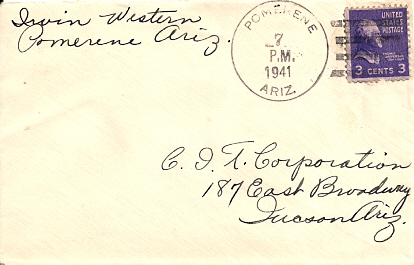 Irvin Western
Pomerene Ariz.
POMERENE
7
P.M.
1941
ARIZ.
UNITED
STATES
POSTAGE
3 CENTS 3
C. I. T. Corporation
187 East Broadway
Tucson Ariz.